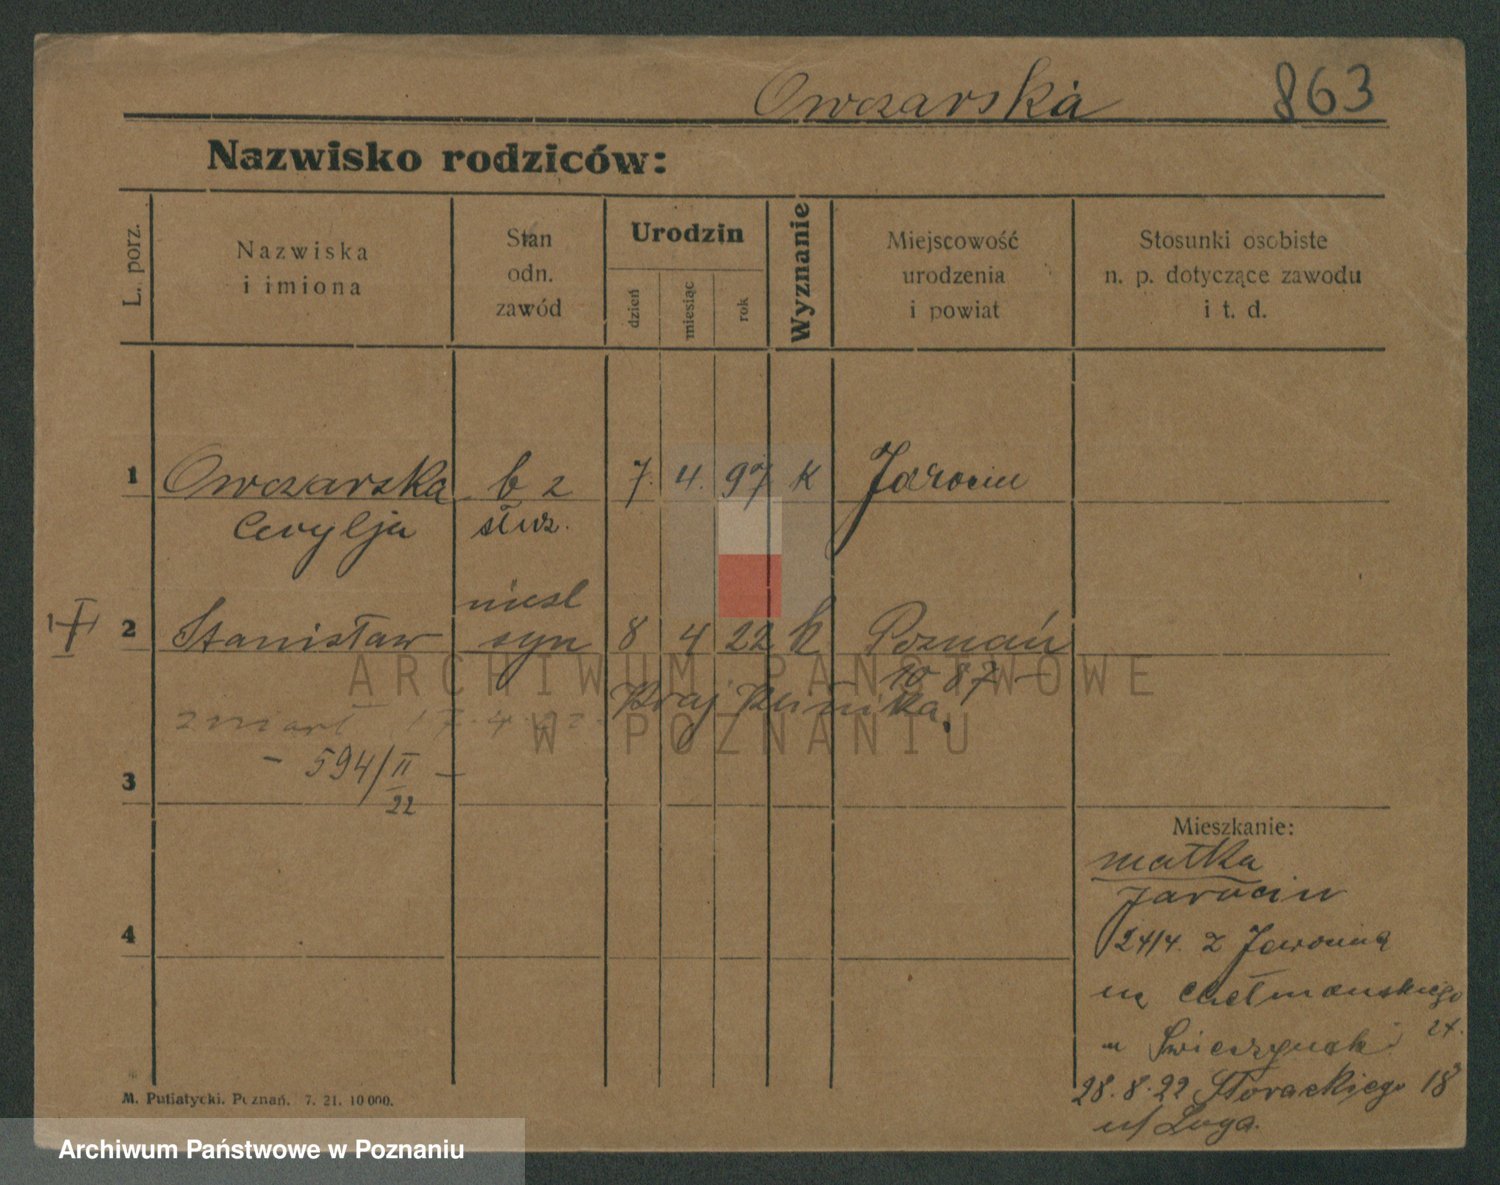 Owczarska 863
Nazwisko rodziców:
L. porz.
Nazwiska
i imiona
Stan
odn.
zawód
Urodzin
dzień
miesiąc
rok
Wyznanie
Miejscowość
urodzenia
i powiat
Stosunki osobiste
n. p. dotyczące zawodu
i t. d.
1 Owczarska b z 7. 4. 97 k Jarocin
Cecylja służ.
nieśl
2 Stanisław syn 8 4 22 k Poznań
1087 –
Kraj Klinika.
zmarł 17.4.22.
3 – 594/II –
22
4
Mieszkanie:
matka
Jarocin
24/4. z Jarocina
na Chełmońskiego
u 24.
28.8.22 Słowackiego 18
u/ Luga.
M. Putiatycki. Poznań. 7. 21. 10 000.
ARCHIWUM PAŃSTWOWE
W POZNANIU
Archiwum Państwowe w Poznaniu